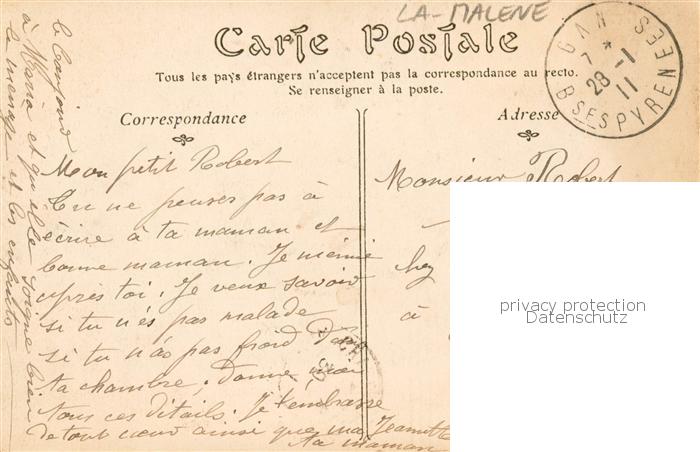 LA-MALENE
Carte Postale
Tous les pays étrangers n'acceptent pas la correspondance au recto.
Se renseigner à la poste.
Correspondance
Adresse
GAN
7 * 
28 -1
11
BSES PYRENEES
le bonjour
à Maria et qu'elle soigne bien
le menage et les enfants
Mon petit Robert
Tu ne penses pas à
écrire à ta maman et
bonne maman. Je
après toi. Je veux savoir
si tu n'és pas malade
si tu n'as pas froid dans
ta chambre, donne moi
tous ces détails. Je t'embrasse
de tout coeur ainsi que ma Jeannette
ta maman
Monsieur Robert
chez
à
privacy protection
Datenschutz